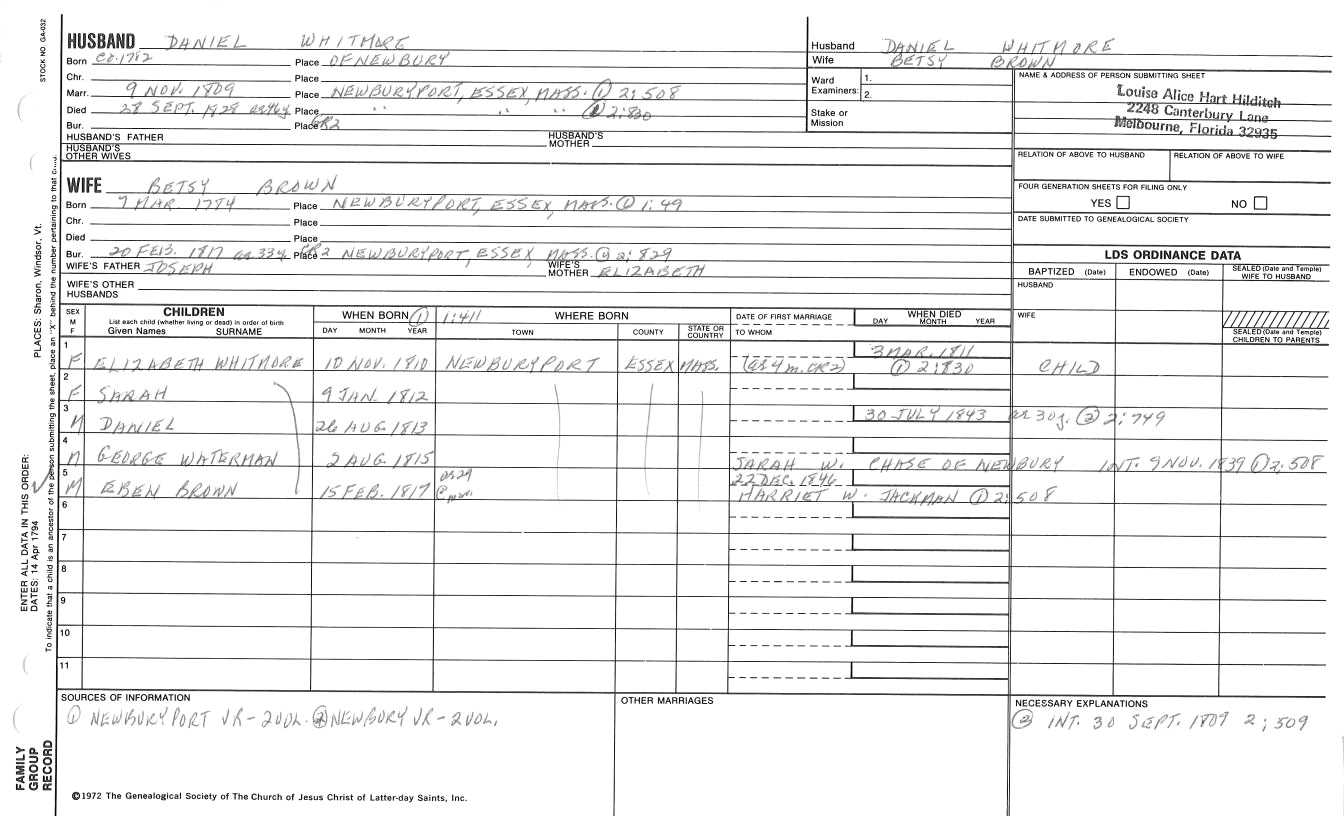 STOCK NO. GA-032
HUSBAND DANIEL WHITMORE
Born CA. 1782 Place OF NEWBURY
Chr. Place
Marr. 9 NOV. 1809 Place NEWBURYPORT, ESSEX, MASS. ① 2:508
Died 28 SEPT. 1828 Place " " " 2:830
Bur. Place GR2
HUSBAND'S FATHER HUSBAND'S MOTHER
HUSBAND'S OTHER WIVES
Husband DANIEL WHITMORE
Wife BETSY BROWN
Ward Examiners: 1.
2.
Stake or Mission
NAME & ADDRESS OF PERSON SUBMITTING SHEET
Louise Alice Hart Hilditch
2248 Canterbury Lane
Melbourne, Florida 32935
RELATION OF ABOVE TO HUSBAND RELATION OF ABOVE TO WIFE
FOUR GENERATION SHEETS FOR FILING ONLY
YES NO
DATE SUBMITTED TO GENEALOGICAL SOCIETY
WIFE BETSY BROWN
Born 7 MAR. 1784 Place NEWBURYPORT, ESSEX, MASS. ① 1:49
Chr. Place
Died Place
Bur. 20 FEB. 1817 Place GR2 NEWBURYPORT, ESSEX, MASS. ① 2:829
WIFE'S FATHER JOSEPH WIFE'S MOTHER ELIZABETH
WIFE'S OTHER HUSBANDS
LDS ORDINANCE DATA
BAPTIZED (Date) ENDOWED (Date) SEALED (Date and Temple) WIFE TO HUSBAND
HUSBAND
WIFE
SEALED (Date and Temple) CHILDREN TO PARENTS
SEX M F
CHILDREN
List each child (whether living or dead) in order of birth
Given Names SURNAME
WHEN BORN ① 1:411 WHERE BORN
DAY MONTH YEAR TOWN COUNTY STATE OR COUNTRY
DATE OF FIRST MARRIAGE
TO WHOM
WHEN DIED
DAY MONTH YEAR
1 3 MAR. 1811
F ELIZABETH WHITMORE 10 NOV. 1810 NEWBURYPORT ESSEX MASS. (as 4 m. GR2) ① 2:830 CHILD
2
F SARAH 9 JAN. 1812
3 30 JULY 1843 ae 30y. ② 2:749
M DANIEL 26 AUG. 1813
4
M GEORGE WATERMAN 2 AUG. 1815 SARAH W. CHASE OF NEWBURY INT. 9 NOV. 1839 ① 2:508
5 22 DEC. 1846
M EBEN BROWN 15 FEB. 1817 HARRIET W. JACKMAN ① 2:508
6
7
8
9
10
11
SOURCES OF INFORMATION
① NEWBURYPORT VR-2 VOL. ② NEWBURY VR-2 VOL.
OTHER MARRIAGES
NECESSARY EXPLANATIONS
③ INT. 30 SEPT. 1809 2:509
©1972 The Genealogical Society of The Church of Jesus Christ of Latter-day Saints, Inc.
PLACES: Sharon, Windsor, Vt.
ENTER ALL DATA IN THIS ORDER:
DATES: 14 Apr 1794
To indicate that a child is an ancestor of the person submitting the sheet, place an "X" behind the number pertaining to that
FAMILY GROUP RECORD